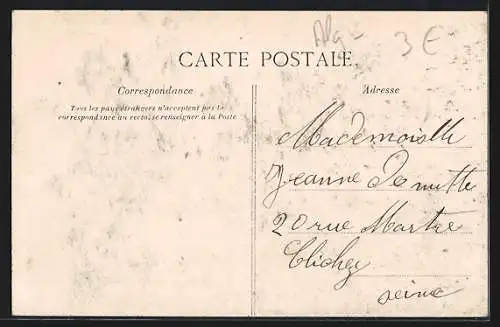 Alg-
3€
CARTE POSTALE
Correspondance
Tous les pays étrangers n'acceptent pas la
correspondance au recto. se renseigner à la Poste
Adresse
Mademoiselle
Jeanne Demutte
20 rue Martre
Clichy
Seine